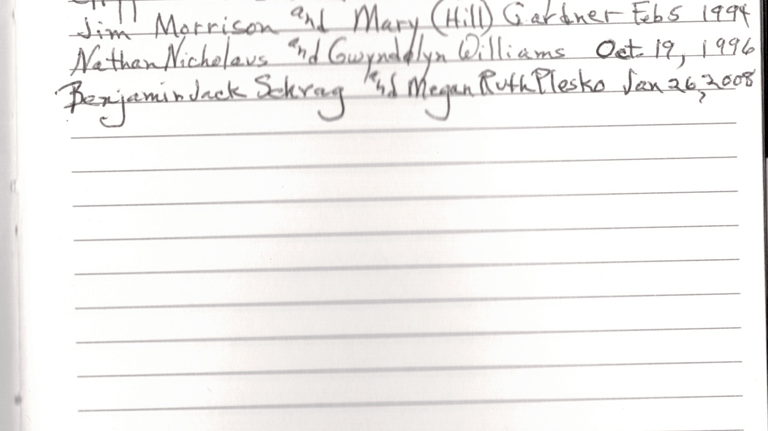 Jim Morrison and Mary (Hill) Gardner Feb 5 1994
Nathan Nicholaus and Gwynddlyn Williams Oct 19, 1996
Benjamin Jack Schrag and Megan Ruth Plesko Jan 26, 2008